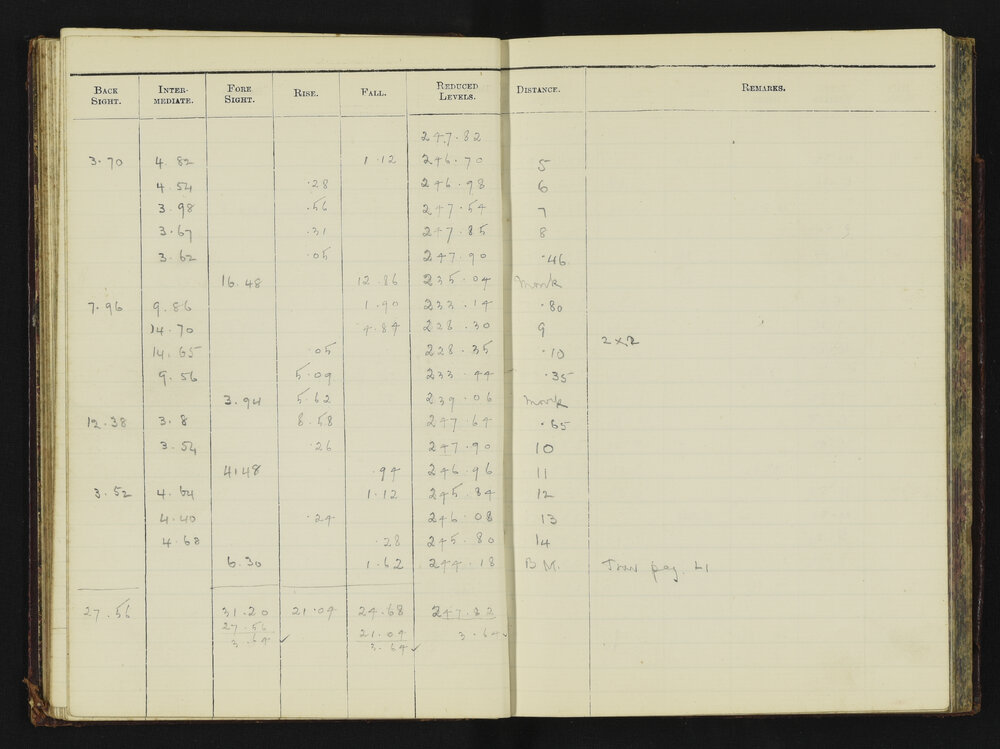 BACK SIGHT. INTER-MEDIATE. FORE SIGHT. RISE. FALL. REDUCED LEVELS. DISTANCE. REMARKS.
247.82
3.70 4.82 1.12 246.70 5
4.54 .28 246.98 6
3.98 .56 247.54 7
3.67 .31 247.85 8
3.62 .05 247.90 .46
16.48 12.86 235.04 Monk
7.96 9.86 1.90 233.14 .80
14.70 4.84 228.30 9
2x2
14.65 .05 228.35 .10
9.56 5.09 233.44 .35
3.94 5.62 239.06 Monk
12.38 3.8 8.58 247.64 .65
3.54 .26 247.90 10
4.48 .94 246.96 11
3.52 4.64 1.12 245.84 12
4.40 .24 246.08 13
4.68 .28 245.80 14
6.30 1.62 244.18 B M. pag. 41
27.56 31.20 21.04 24.68 247.82
27.56 21.04 3.64
3.64 ✓ 3.64 ✓